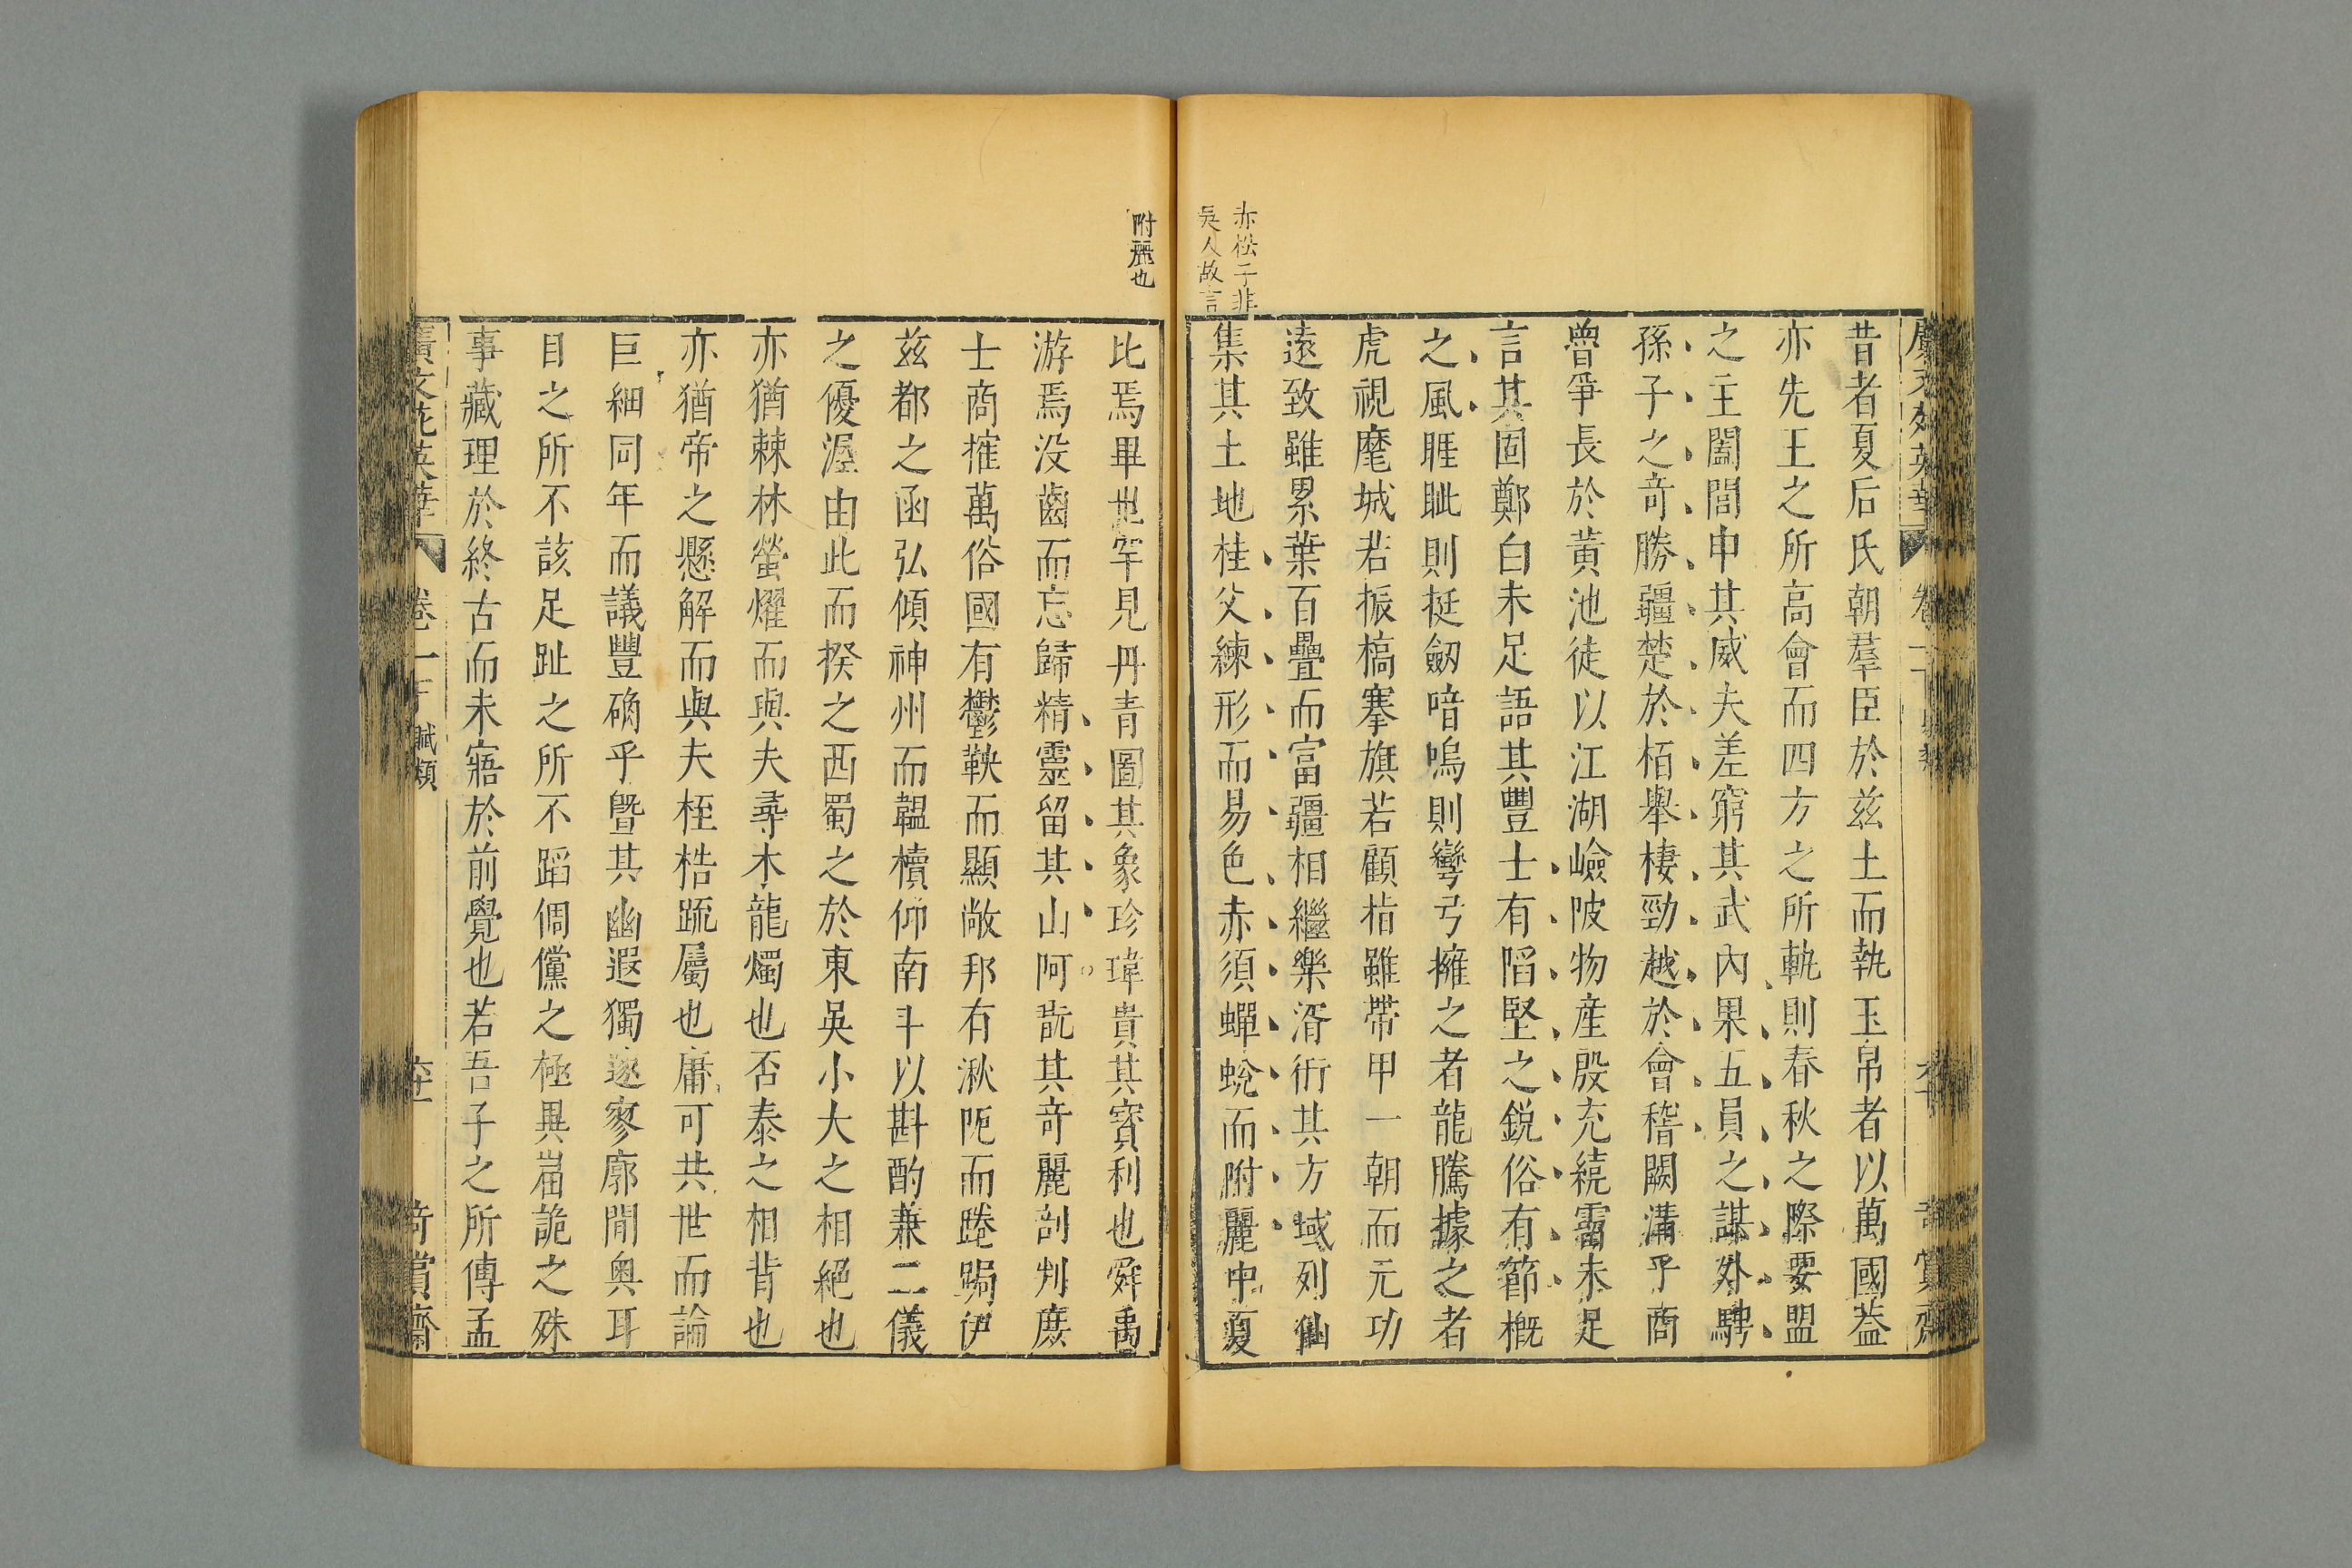 昔者夏后氏朝羣臣於兹土而執玉帛者以萬國葢
亦先王之所高會而四方之所軌則春秋之際要盟
之主闔閭申其威夫差窮其武內果五員之謀外騁
孫子之竒勝疆楚於栢舉棲勁越於會稽闕溝乎商
魯爭長於黄池徒以江湖嶮陂物産殷充繞霤未足
言其固鄭白未足語其豐士有陷堅之鋭俗有節概
之風睚眦則挺劒喑嗚則彎弓擁之者龍騰據之者
虎視麾城若振槁搴旗若顧指雖帶甲一朝而元功
遠致雖累葉百疊而富疆相繼樂湑衎其方域列仙
集其土地桂父練形而易色赤須蟬蛻而附麗中夏
赤松子非
吳人故言
附麗也
比焉畢世罕見丹青圖其象珍瑋貴其寳利也舜禹
游焉没齒而忘歸精靈留其山阿翫其竒麗剖判庶
士商搉萬俗國有鬱鞅而顯敞邦有湫阨而踡跼伊
兹都之函弘傾神州而韞櫝仰南斗以斟酌兼二儀
之優渥由此而揆之西蜀之於東吳小大之相絕也
亦猶棘林螢燿而與夫尋木龍燭也否泰之相背也
亦猶帝之懸解而與夫桎梏疏屬也庸可共世而論
巨細同年而議豐确乎曁其幽遐獨邃寥廓閒奥耳
目之所不該足趾之所不蹈倜儻之極異崫詭之殊
事藏理於終古而未寤於前覺也若吾子之所傳孟
廣文苑英華 卷一下 賦類 六十一 奇賞齋